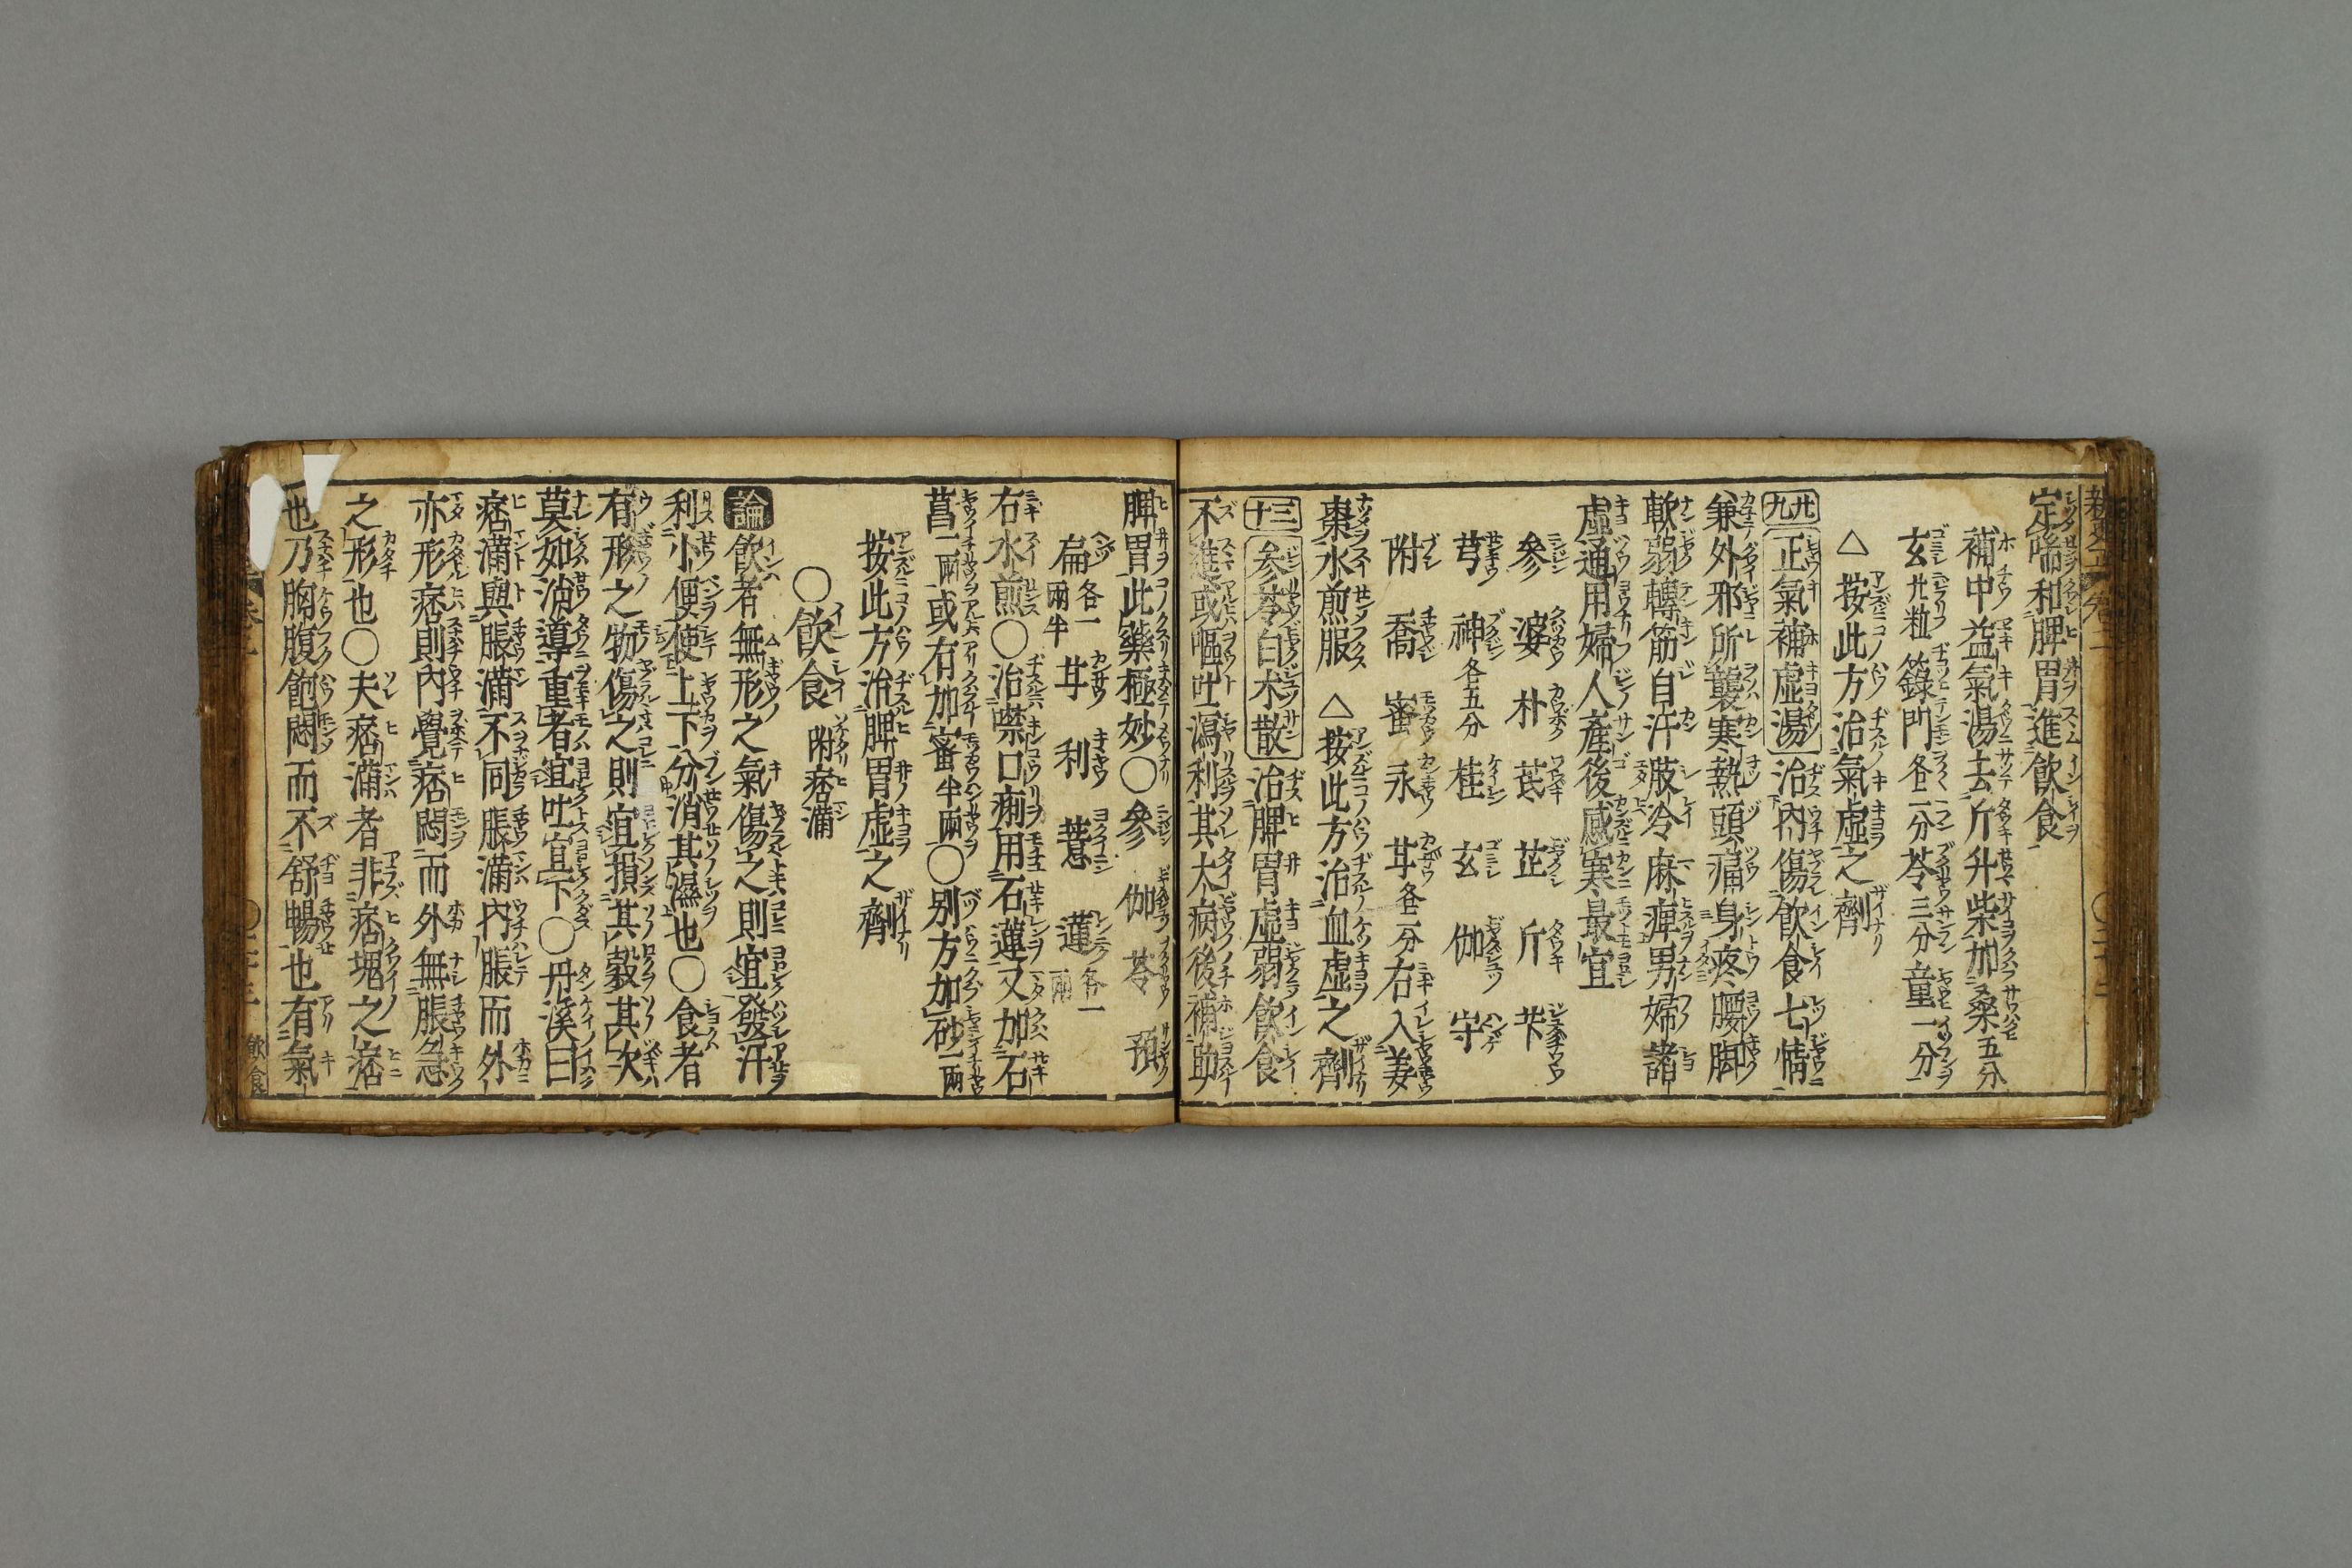 定喘和脾胃進飲食
補中益氣湯去斤升柴加桑五分
玄廿粒 籙 門各一分 苓三分 童一分
△按此方治氣虛之劑
廿九 正氣補虛湯 治內傷飲食七情
兼外邪所襲寒熱頭痛身疼腰脚
軟弱轉筋自汗肢冷麻痺男婦諸
虛通用婦人產後感寒最宜
參 婆 朴 茋 芷 斤 芐
芎 神各五分 桂 玄 伽 守
附 喬 蜜 永 苷各二分 右入姜
棗水煎服 △按此方治血虛之劑
三十 參苓白朮散 治脾胃虛弱飲食
不進或嘔吐瀉利其大病後補助
脾胃此藥極妙○參 伽 苓 預
扁各一兩半 苷 利 薏 蓮各一兩
右水煎○治噤口痢用石蓮又加石
菖一兩或右加審半兩○别方加砂一兩
按此方治脾胃虛之劑
○飲食 附痞滿
論 飲者無形之氣傷之則宜發汗
利小便使上下分消其濕也○食者
有形之物傷之則宜損其穀其次
莫如消導重者宜吐宜下○丹溪曰
痞滿與脹滿不同脹滿内脹而外
亦形痞則内覺痞悶而外無脹急
之形也○夫痞滿者非痞塊之痞
也乃胸腹飽悶而不舒暢也有氣
飲食